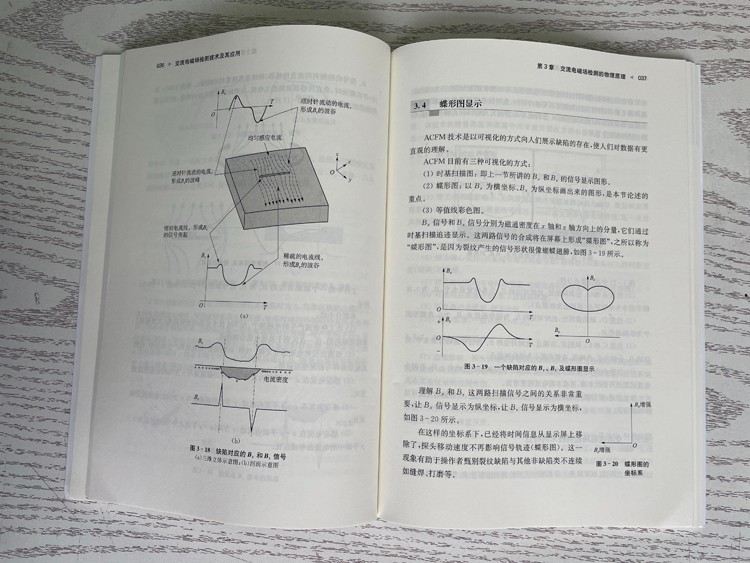 036 • 交流电磁场检测技术及其应用
Bz
O
T
逆时针流动的电流,
形成Bz的波谷
均匀感应电流
顺时针流动的电流,
形成Bz的波峰
密的电流线,形成Bx
的信号突起
稀疏的电流线,
形成Bx的波谷
Bx
O
T
(a)
Bx
电流密度
Bz
(b)
图 3-18 缺陷对应的 Bx 和 Bz 信号
(a)三维立体示意图;(b)剖面示意图
第 3 章 交流电磁场检测的物理原理 • 037
3.4 蝶形图显示
ACFM 技术是以可视化的方向人们展示缺陷的存在,使人们对数据有更
直观的理解。
ACFM 目前有三种可视化的方式:
(1) 时基扫描图:即上一节所讲的 Bx 和 Bz 的信号显示图形。
(2) 蝶形图:以 Bz 为横坐标、Bx 为纵坐标画出来的图形,是本节论述的
重点。
(3) 等值线彩色图。
Bx 信号和 Bz 信号分别为磁通密度在 x 轴和 z 轴方向上的分量,它们通过
时基扫描追迹显示。这两路信号的合成将在屏幕上形成“蝶形图”,之所以称为
“蝶形图”,是因为裂纹产生的信号形状很像蝴蝶翅膀,如图 3-19 所示。
Bx
O
T
Bz
O
T
Bx
Bz
O
图 3-19 一个缺陷对应的 Bx、Bz 及蝶形图显示
理解 Bx 和 Bz 这两路扫描信号之间的关系非常重
要,让 Bx 信号显示为纵坐标,让 Bz 信号显示为横坐标,
如图 3-20 所示。
在这样的坐标系下,已经将时间信息从显示屏上移
除了,探头移动速度不再影响信号轨迹(蝶形图)。这一
现象有助于操作者甄别裂纹缺陷与其他非缺陷类不连续
如缝焊、打磨等。
Bx增强
O
Bz增强
图 3-20 蝶形图的
坐标系